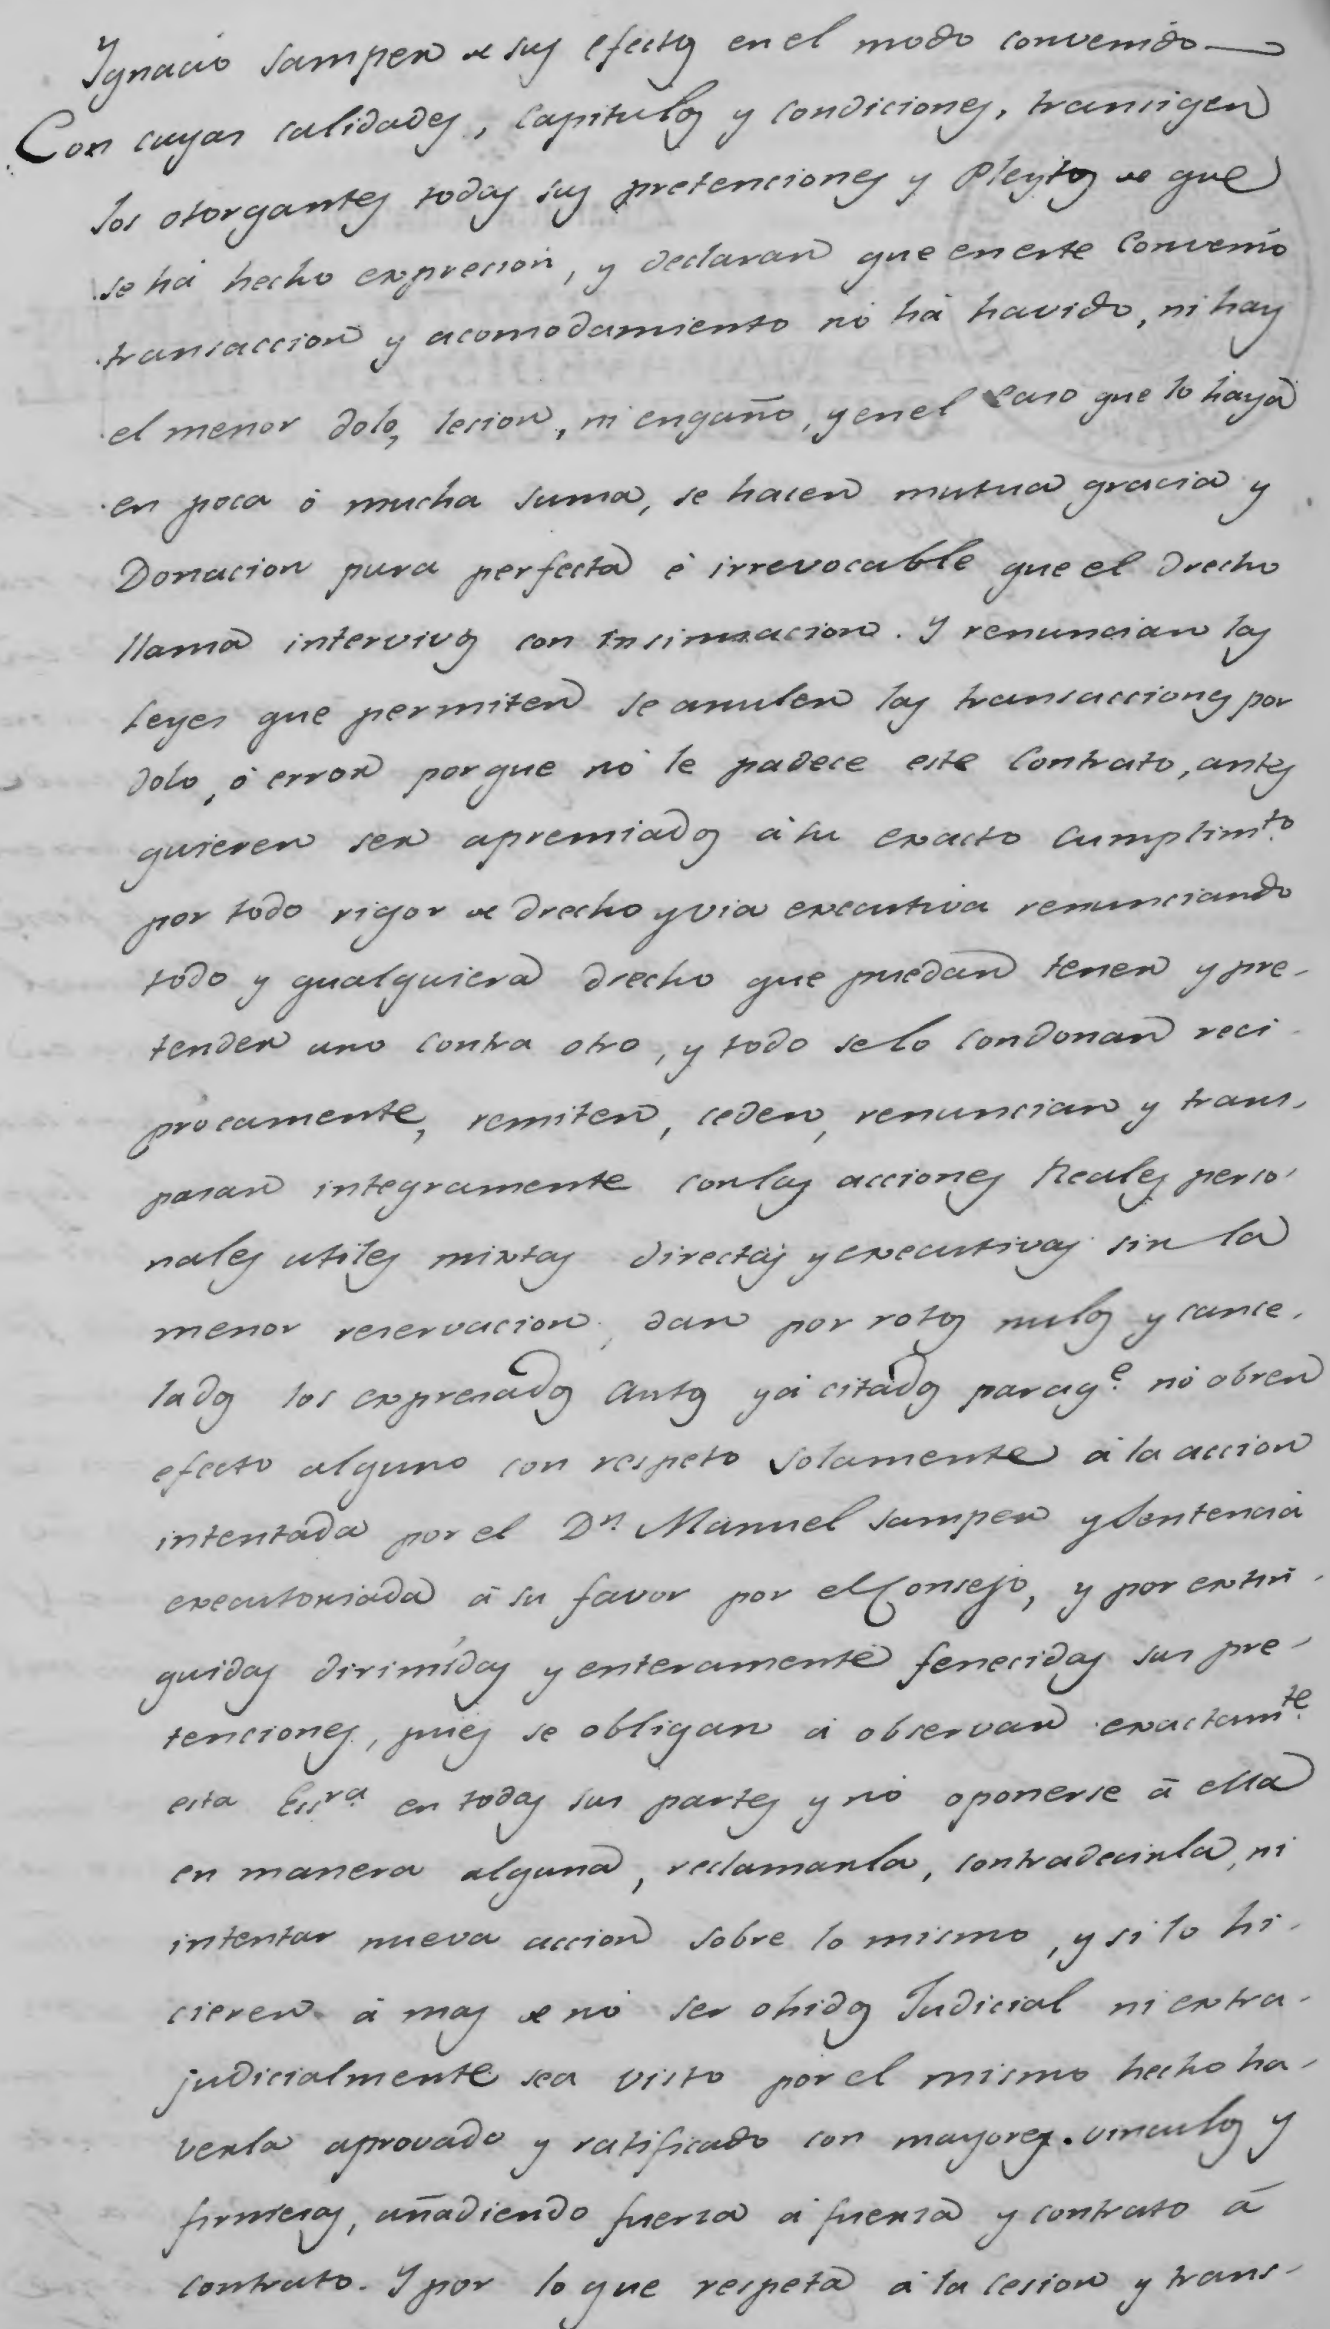 Ygnacio Samper de sus efectos en el modo convenido
Con cuyas calidades, capitulos y condiciones, transigen
los otorgantes todas sus pretenciones y Pleytos de que
se há hecho exprecion, y declaran que en este Convenio
transaccion y acomodamiento nó há havido, ni hay
el menor dolo, lecion, ni engaño, y en el caso que lo haya
en poca ó mucha suma, se hacen mutua gracia y
Donacion pura perfecta é irrevocable que el drecho
llama intervivos con insinuacion. Y renuncian las
Leyes que permiten se anulen las transacciones por
dolo, ó error porque nó le padece este Contrato, antes
quieren ser apremiados á su exacto cumplimto.
por todo rigor de drecho y via executiva renunciando
todo y qualquiera drecho que puedan tener y pre-
tender uno contra otro, y todo se lo condonan reci-
procamente, remiten, ceden, renuncian y trans-
pasan integramente con las acciones Reales perso-
nales utiles mixtas directas y executivas sin la
menor reservacion, dan por rotos nulos y cance-
lados los expresados Autos yá citados paraqe. nó obren
efecto alguno con respeto solamente á la accion
intentada por el Dn. Manuel Samper y Sentencia
executoriada á su favor por el Consejo, y por extin-
guidas dirimidas y enteramente fenecidas sus pre-
tenciones, pues se obligan á observar exactamte.
esta Essra. en todas sus partes y nó oponerse á ella
en manera alguna, reclamarla, contradecirla, ni
intentar nueva accion sobre lo mismo, y si lo hi-
cieren á mas de nó ser ohidos Judicial ni extra-
judicialmente sea visto por el mismo hecho ha-
verla aprovado y ratificado con mayores vinculos y
firmesas, añadiendo fuersa á fuersa y contrato á
contrato. Y por lo que respeta á la cesion y trans-